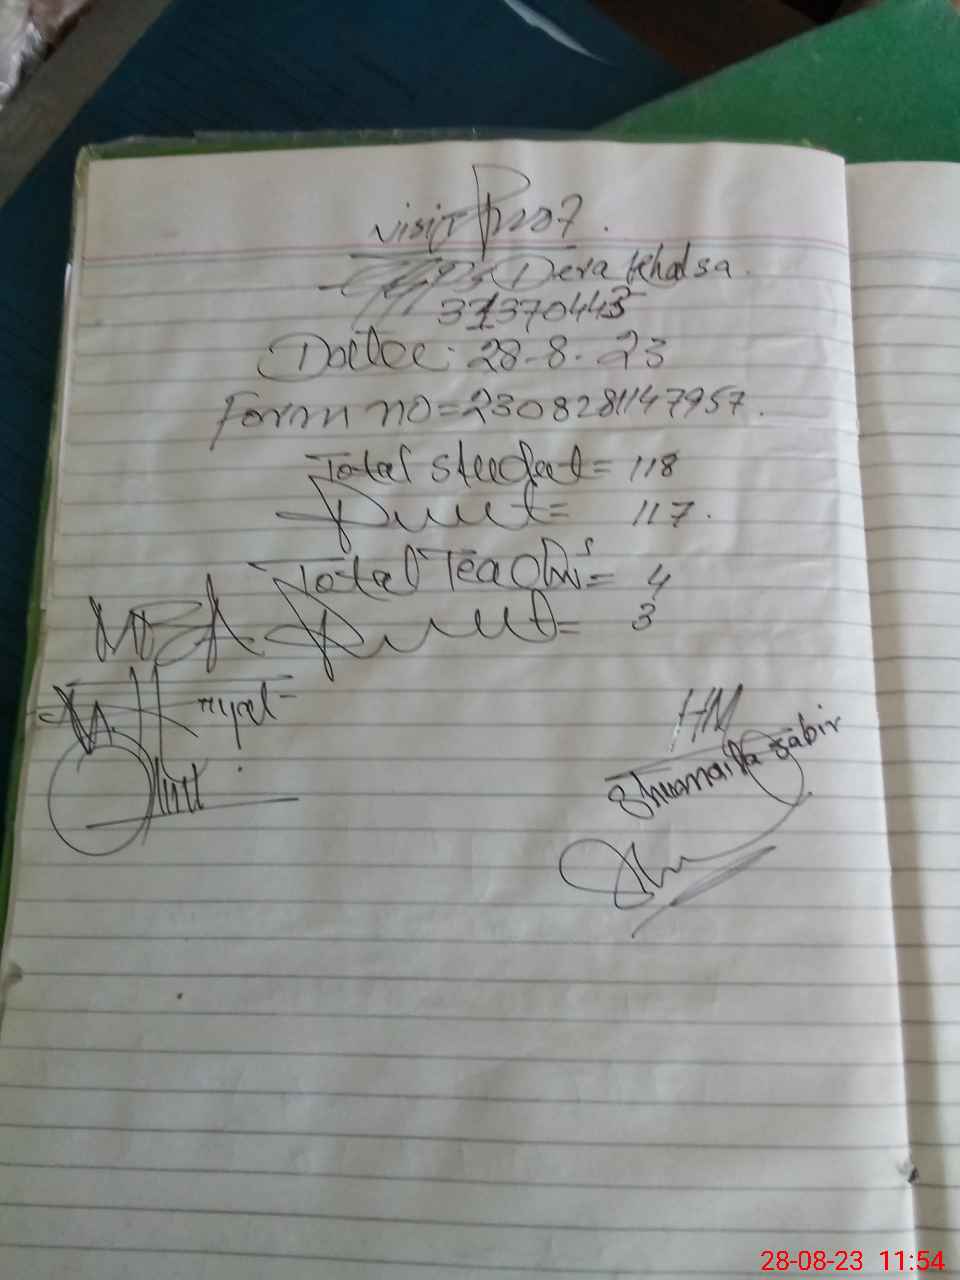 Visit Proof.
GGPS Dera Khalsa.
37370443
Date: 28-8-23
Form no=2308281147957.
Total student= 118
Present= 117.
Total Teachers= 4
MEA Present= 3
HM
Shumaila Sabir
28-08-23 11:54